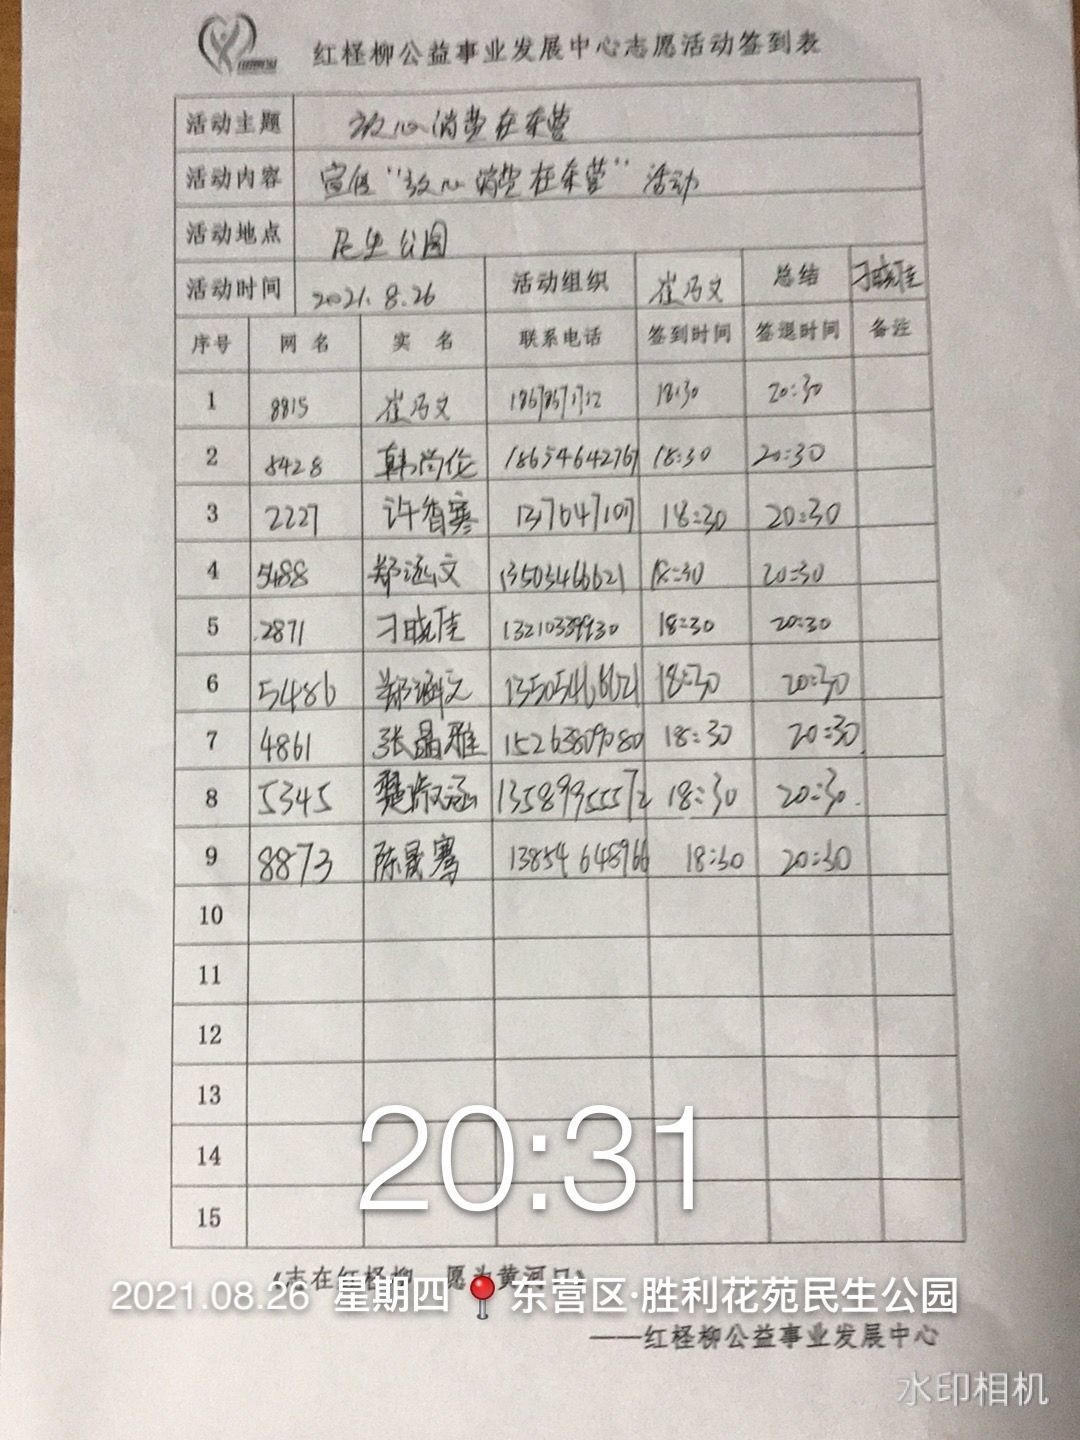 红柽柳公益事业发展中心志愿活动签到表
活动主题 放心消费在东营
活动内容 宣传“放心消费在东营”活动
活动地点 民生公园
活动时间 2021.8.26 活动组织 崔乃文 总结 刁晓佳
序号 网名 实名 联系电话 签到时间 签退时间 备注
1 8815 崔乃文 18:30 20:30
2 8428 韩尚伦 18654642767 18:30 20:30
3 2227 许智寒 18:30 20:30
4 5488 郑涵文 18:30 20:30
5 2871 刁晓佳 13210339930 18:30 20:30
6 5486 郑涵文 13505466621 18:30 20:30
7 4861 张晶雅 15263809080 18:30 20:30
8 5345 楚淑涵 13589955572 18:30 20:30
9 8873 陈晟骞 13854648966 18:30 20:30
10
11
12
13
14
15
20:31
志在红柽柳 愿为黄河口
2021.08.26 星期四 东营区·胜利花苑民生公园
——红柽柳公益事业发展中心
水印相机